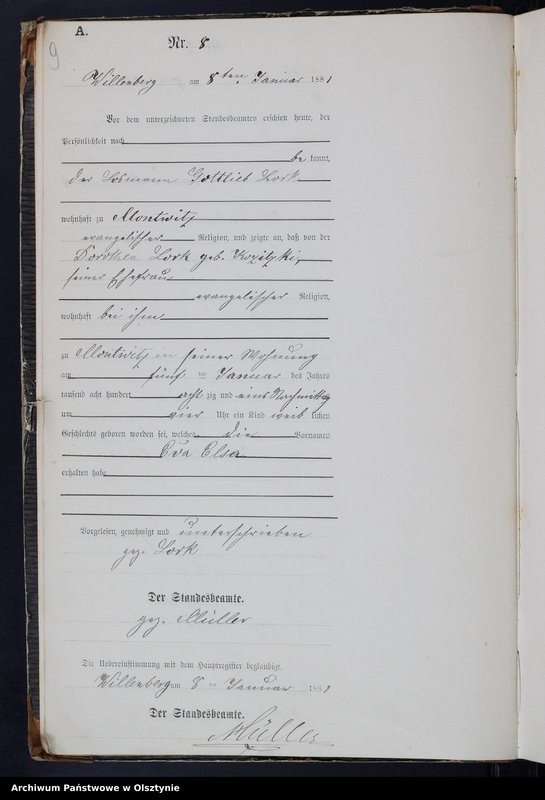 9
A.
Nr. 8
Willenberg am 8ten Januar 1881
Vor dem unterzeichneten Standesbeamten erschien heute, der
Persönlichkeit nach
be kannt,
der Losmann Gottlieb Lork
wohnhaft zu Montwitz
evangelischer Religion, und zeigte an, daß von der
Dorothea Lork geb. Kozitzki,
seiner Ehefrau
evangelischer Religion,
wohnhaft bei ihm
zu Montwitz in seiner Wohnung
am fünf ten Januar des Jahres
tausend acht hundert acht zig und eins Nachmittag
um vier Uhr ein Kind weib lichen
Geschlechts geboren worden sei, welches die Vornamen
Eva Elsa
erhalten habe
Vorgelesen, genehmigt und unterschrieben
gez. Lork
Der Standesbeamte.
gez. Müller
Die Uebereinstimmung mit dem Hauptregister beglaubigt.
Willenberg am 8 ten Januar 1881
Der Standesbeamte.
Müller
Archiwum Państwowe w Olsztynie